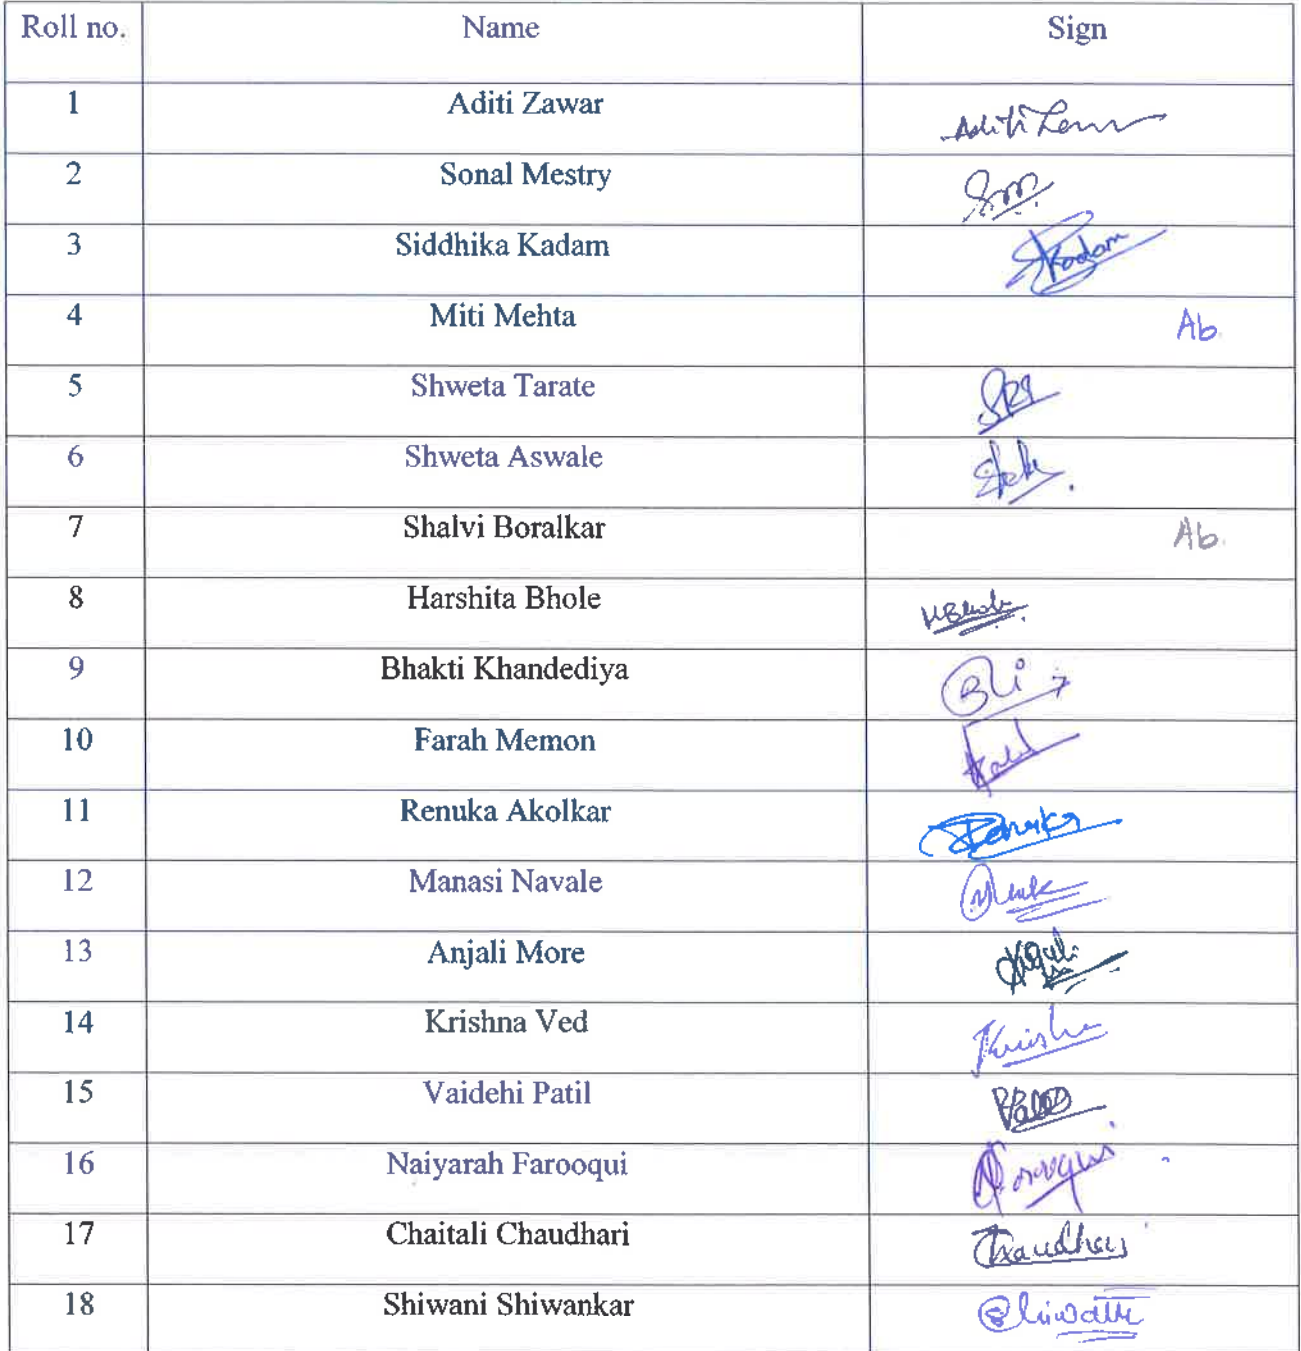 Roll no. Name Sign
1 Aditi Zawar Aditi
2 Sonal Mestry
3 Siddhika Kadam Kadam
4 Miti Mehta Ab
5 Shweta Tarate
6 Shweta Aswale
7 Shalvi Boralkar Ab.
8 Harshita Bhole
9 Bhakti Khandediya
10 Farah Memon
11 Renuka Akolkar Renuka
12 Manasi Navale
13 Anjali More
14 Krishna Ved
15 Vaidehi Patil
16 Naiyarah Farooqui
17 Chaitali Chaudhari Chaudhari
18 Shiwani Shiwankar